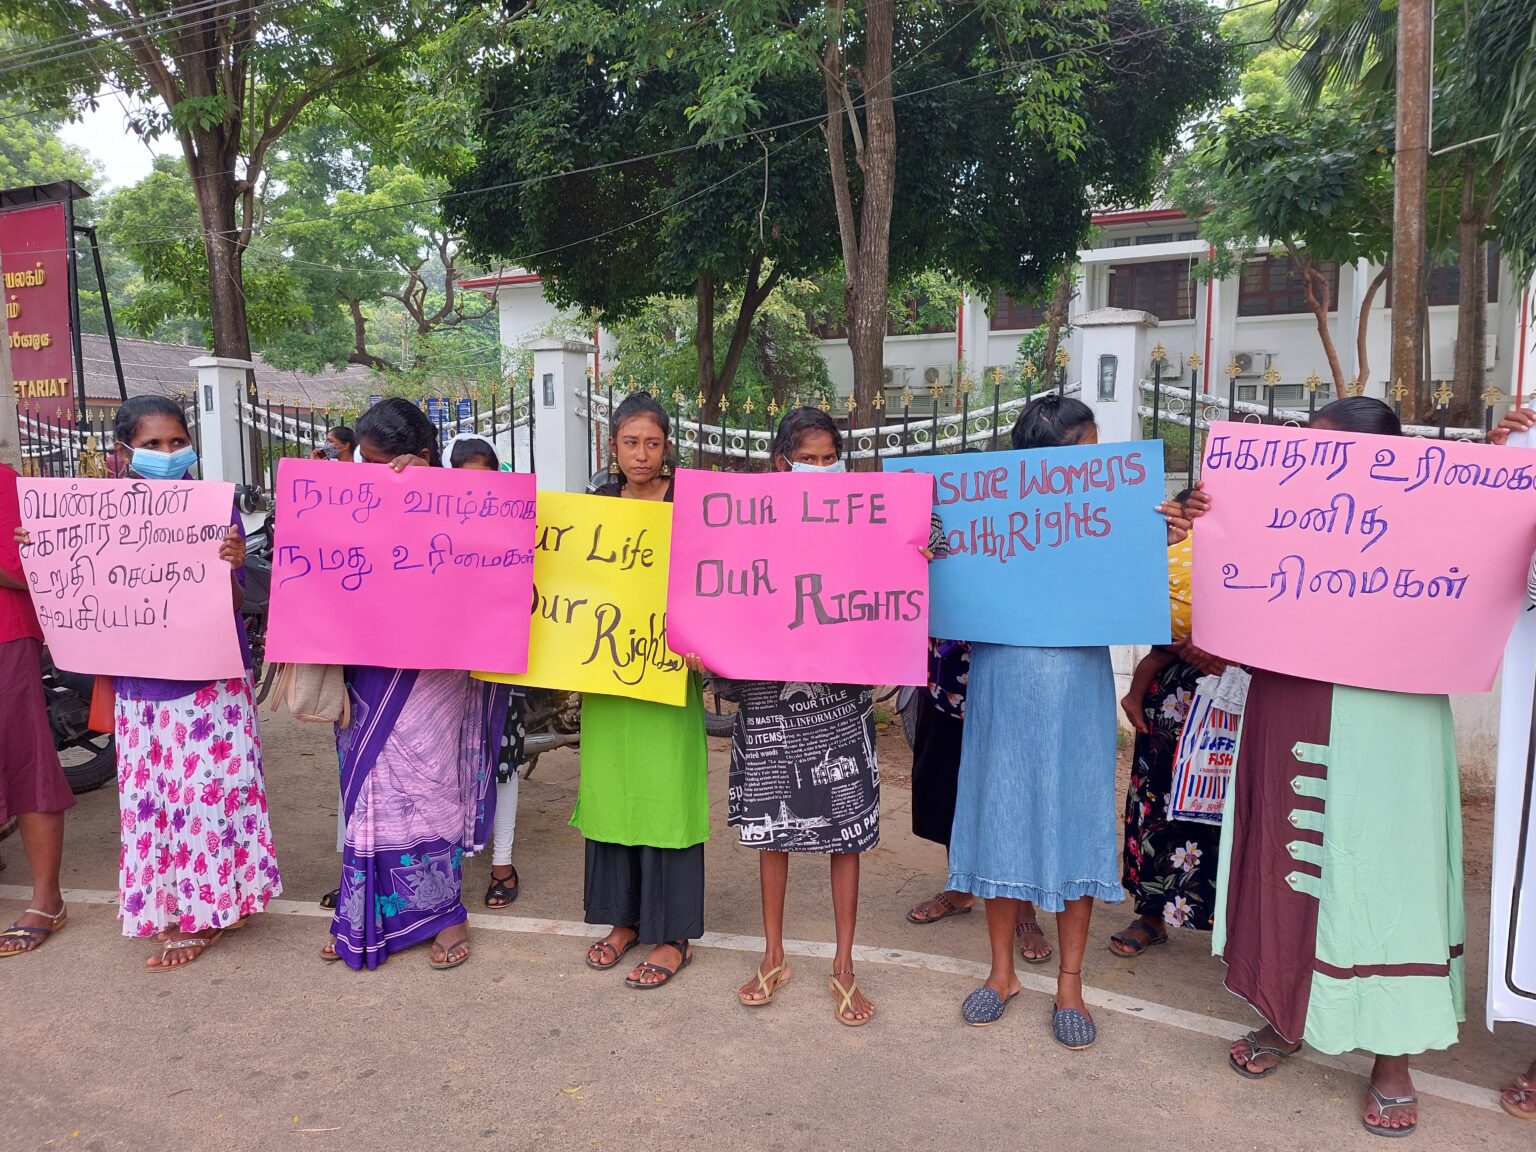 யலகம்
ETARIAT
பெண்களின்
சுகாதார உரிமைகளை
உறுதி செய்தல்
அவசியம்!
நமது வாழ்க்கை
நமது உரிமைகள்
ur Life
Our Rights
OUR LIFE
OUR RIGHTS
nsure Womens
ealth Rights.
சுகாதார உரிமைக
மனித
உரிமைகள்
YOUR TITLE
LL INFORMATION
MASTER
LD ITEMS
OLD PAP
FASH